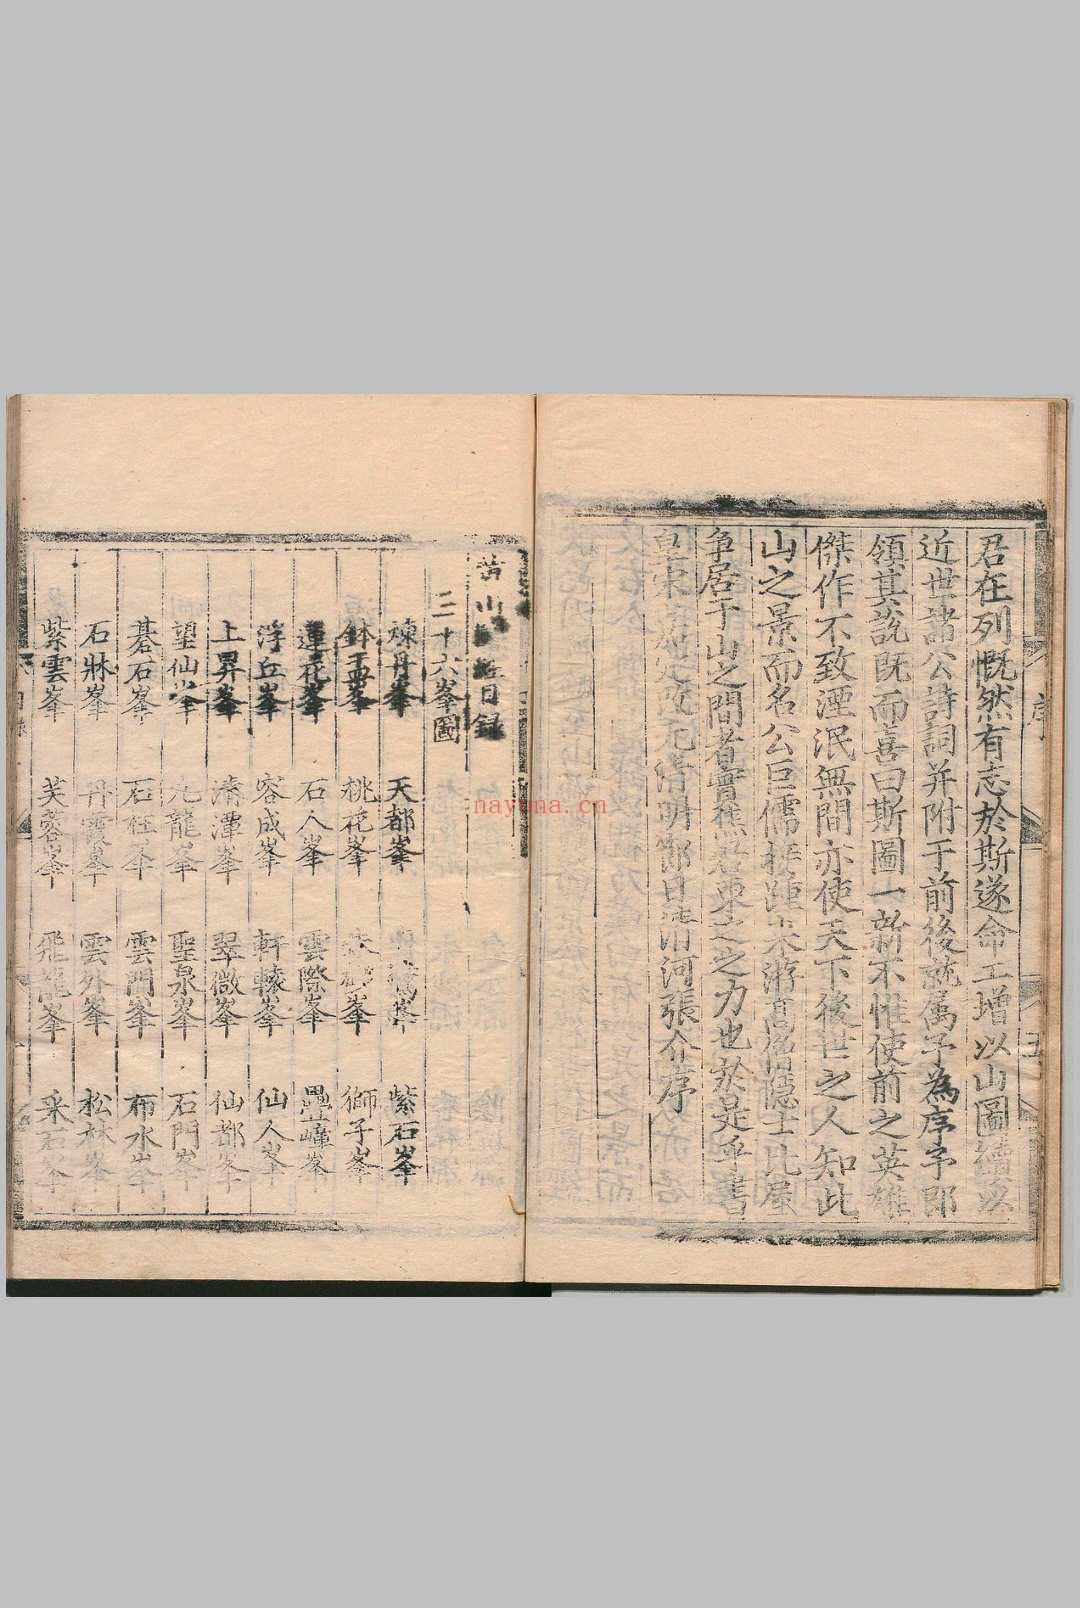 君在列慨然有志於斯遂命工增以山圖續以
近世諸公詩詞并附于前後就属予為序予郎
領其説既而喜曰斯圖一新不惟使前之英雄
傑作不致湮泯無聞亦使天下後世之人知此
山之景而名公巨儒接踵来游髙僧隱士比屋
争居于山之間者實焦君東之之力也於是乎書
皇宋 清明節日清河張介序
序
五
黄山圖經目録
三十六峯圖
煉丹峯 天都峯 峯 紫石峯
鉢盂峯 桃花峯 峯 獅子峯
蓮花峯 石人峯 雲際峯 疊嶂峯
浮丘峯 容成峯 軒轅峯 仙人峯
上昇峯 清潭峯 翠微峯 仙都峯
望仙峯 九龍峯 聖泉峯 石門峯
碁石峯 石柱峯 雲門峯 布水峯
石牀峯 丹霞峯 雲外峯 松林峯
紫雲峯 芙蓉峯 飛龍峯 采石峯
目録
nayona.cn